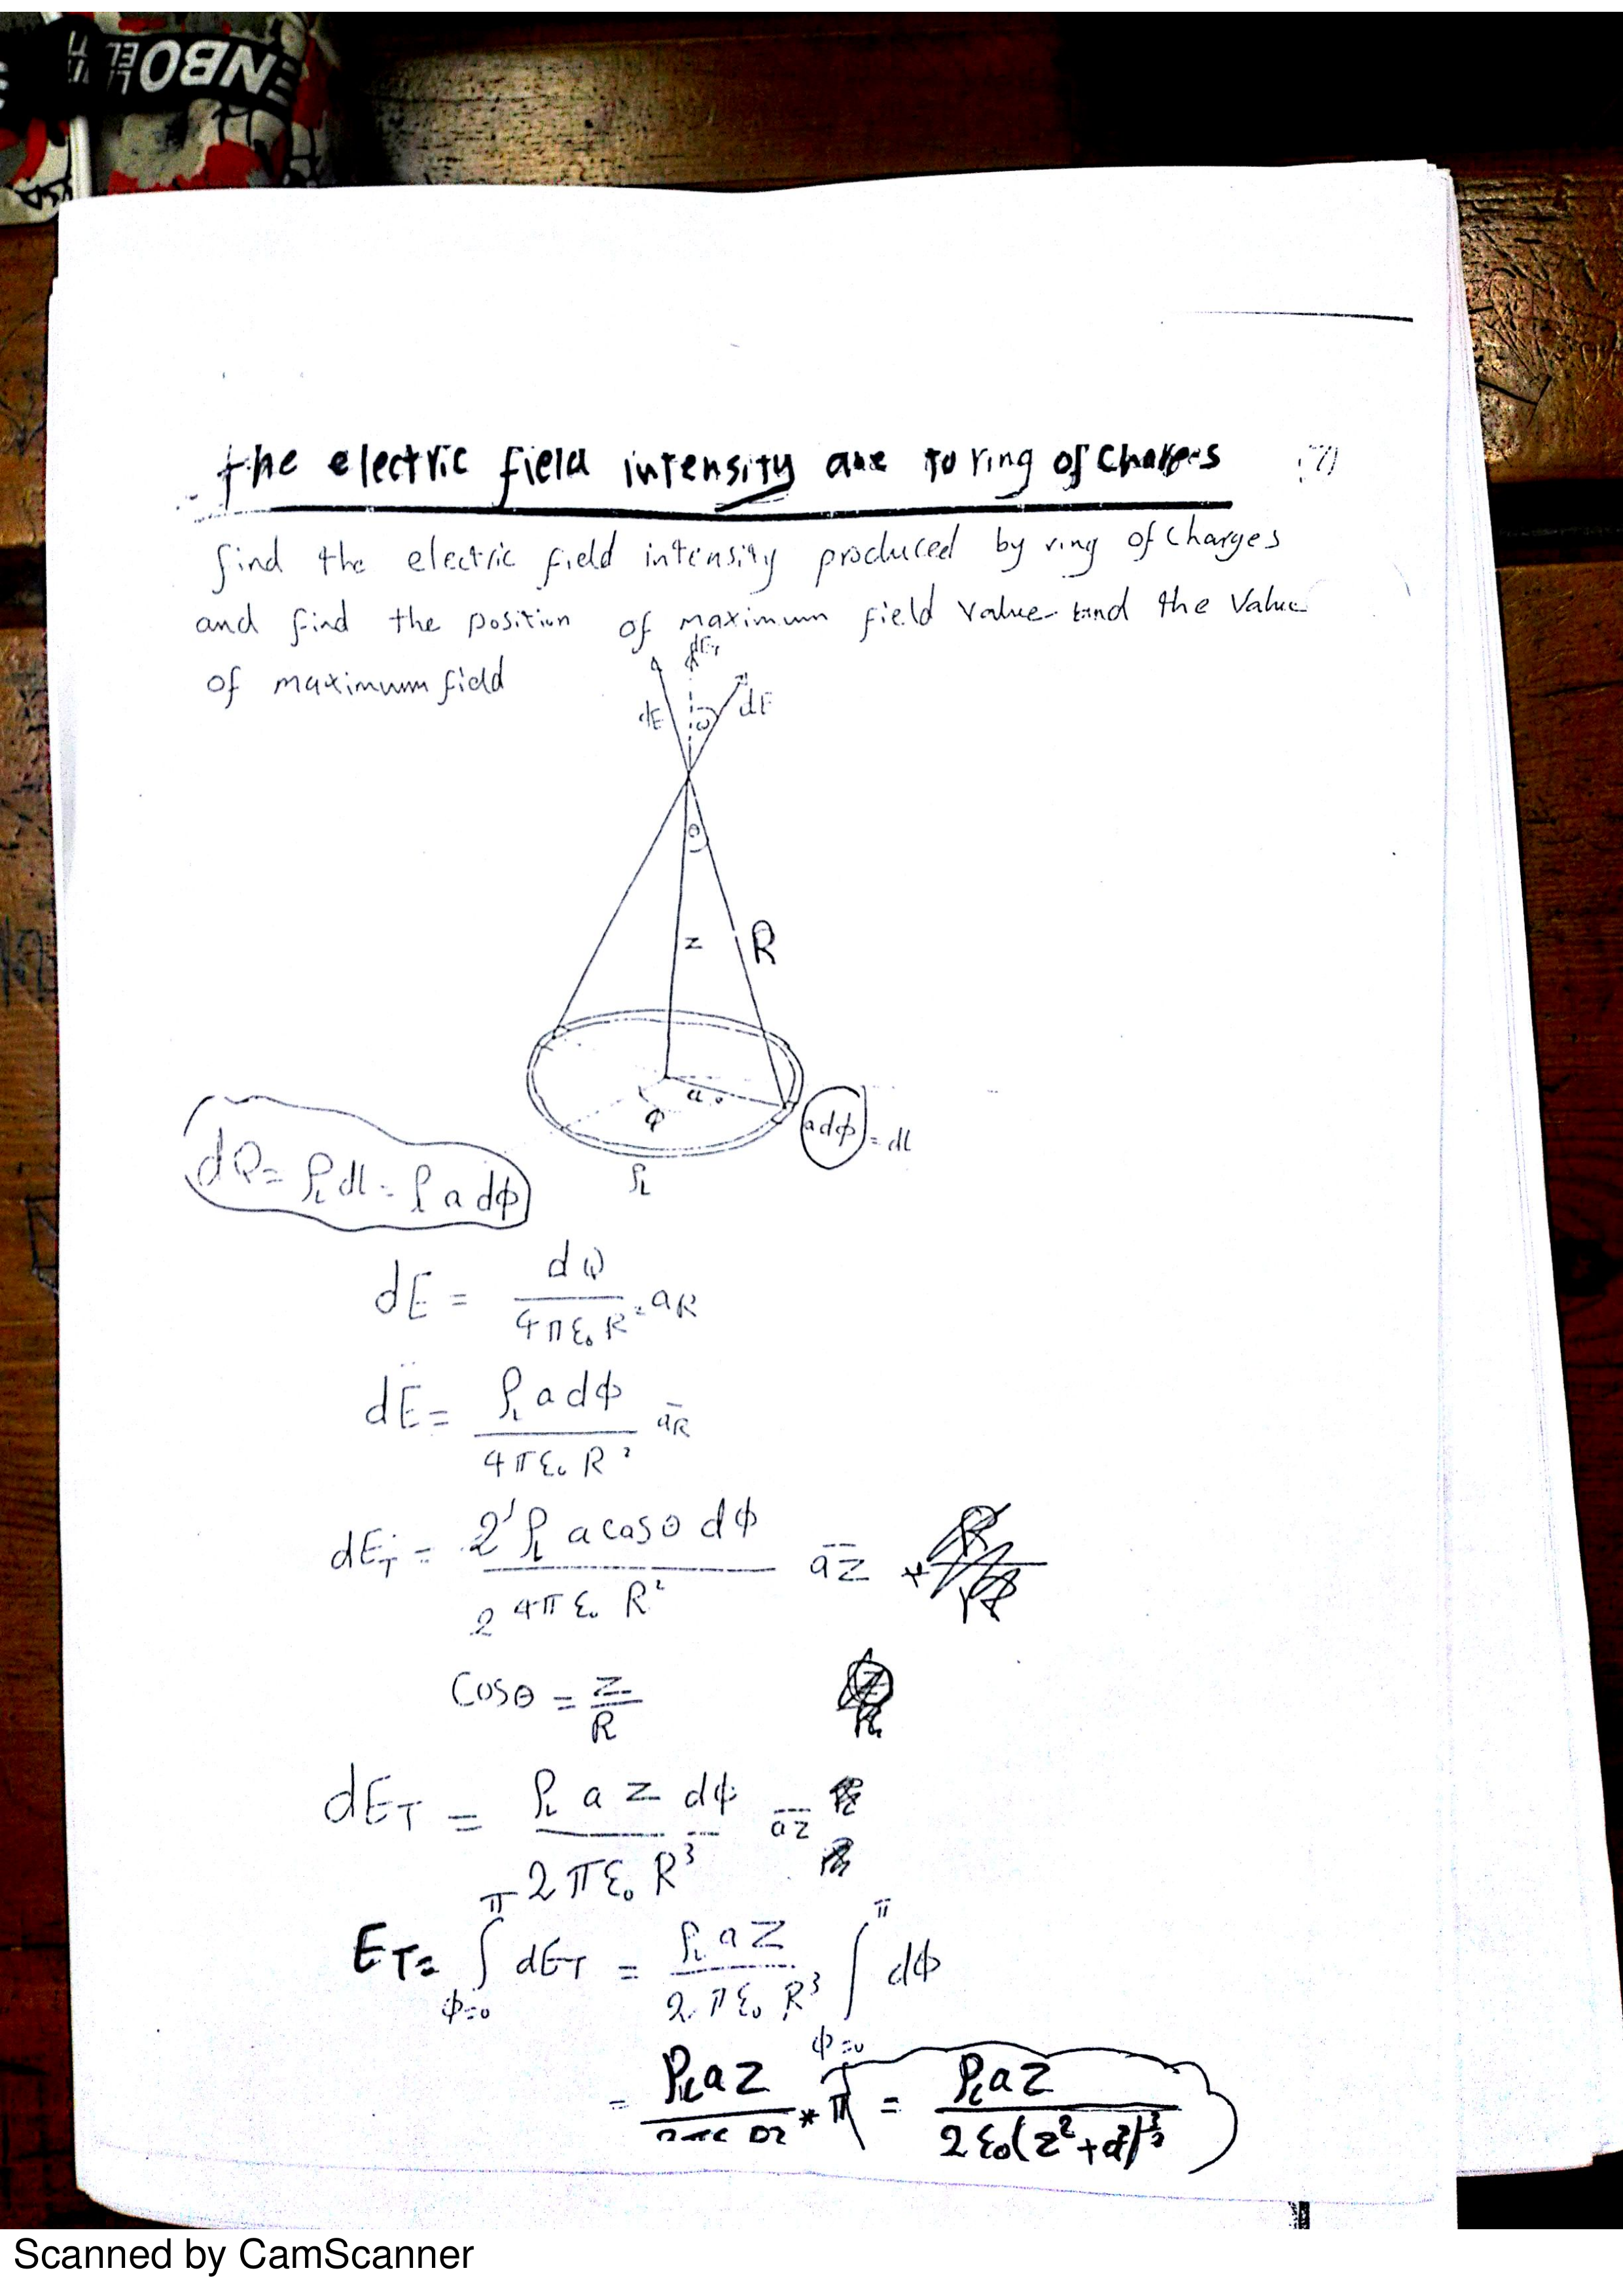 ENBO
the electric field intensity due to ring of Charges (7)
find the electric field intensity produced by ring of charges
and find the position of maximum field value and the Value
of maximum field
dE_T
dE θ dE
θ
z R
a
φ
adφ = dl
ρ_L
dQ = ρ_L dl = ρ_L a dφ
dE = dQ / 4πε₀R² a_R
dE = ρ_L a dφ / 4πε₀R² a_R
dE_T = 2 ρ_L a cosθ dφ / 4πε₀ R² a_z
Cosθ = z / R
dE_T = ρ_L a z dφ / 2πε₀ R³ a_z
E_T = ∫_{φ=0}^{π} dE_T = ρ_L a z / 2πε₀ R³ ∫_{φ=0}^{π} dφ
= ρ_L a z / 2πε₀ R³ * π = ρ_L a z / 2ε₀(z²+a²)^{3/2}
Scanned by CamScanner